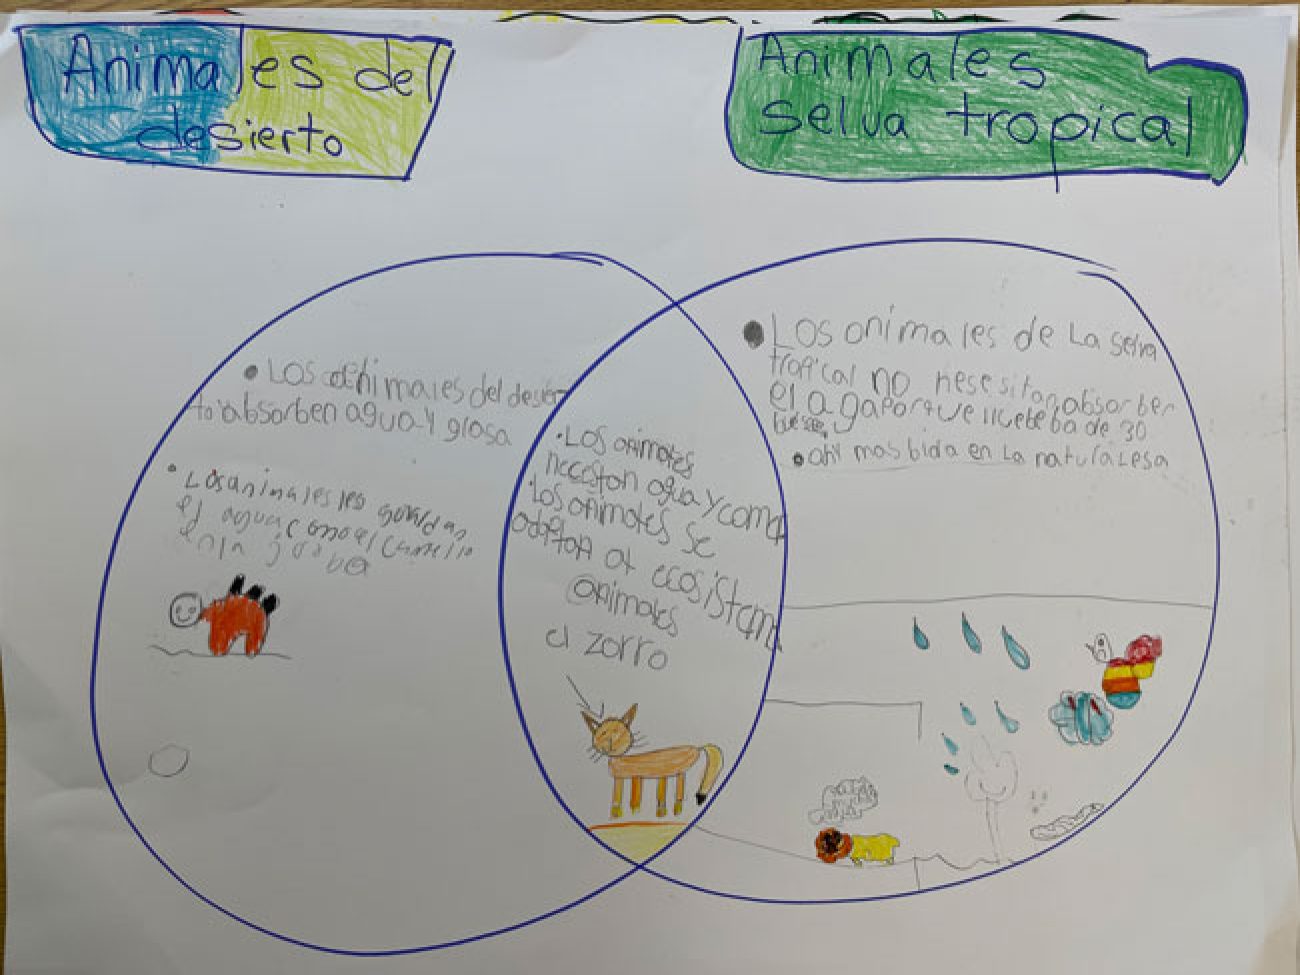 Animales del
desierto
Animales
selva tropical
• Los animales del desier
to absorben agua y glosa
• Los animales les guardan
el agua como el camello
en la joroba
• Los animales
neceston agua y coma
• Los animales se
adaptan al ecosistema
animales
el zorro
• Los animales de La selva
tropical no nesesitan absorber
el agaporque llueve ba de 30
• ahi mas bida en La naturalesa